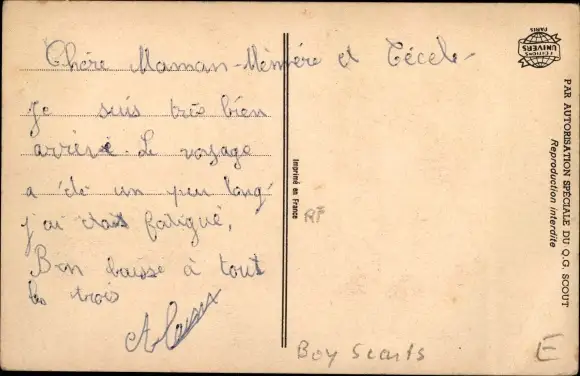 Chère Maman-Mémére et Cécele-
Je suis tréo bien
arrivé. Le voyage
a été un peu long
j'ai était fatigué,
Bon baisse à tout
les trois
EDITIONS
UNIVERS
PARIS
PAR AUTORISATION SPÉCIALE DU Q.G. SCOUT
Reproduction interdite
Imprimé en France
Boy Scouts
E